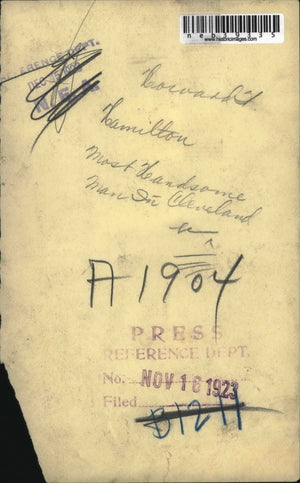 neb39835
www.historicimages.com
REFERENCE DEPT.
N.E.A.
Howard H.
Hamilton
Most Handsome
Man In Cleveland
A1904
PRESS
REFERENCE DEPT.
No. NOV 16 1923
Filed
B1211